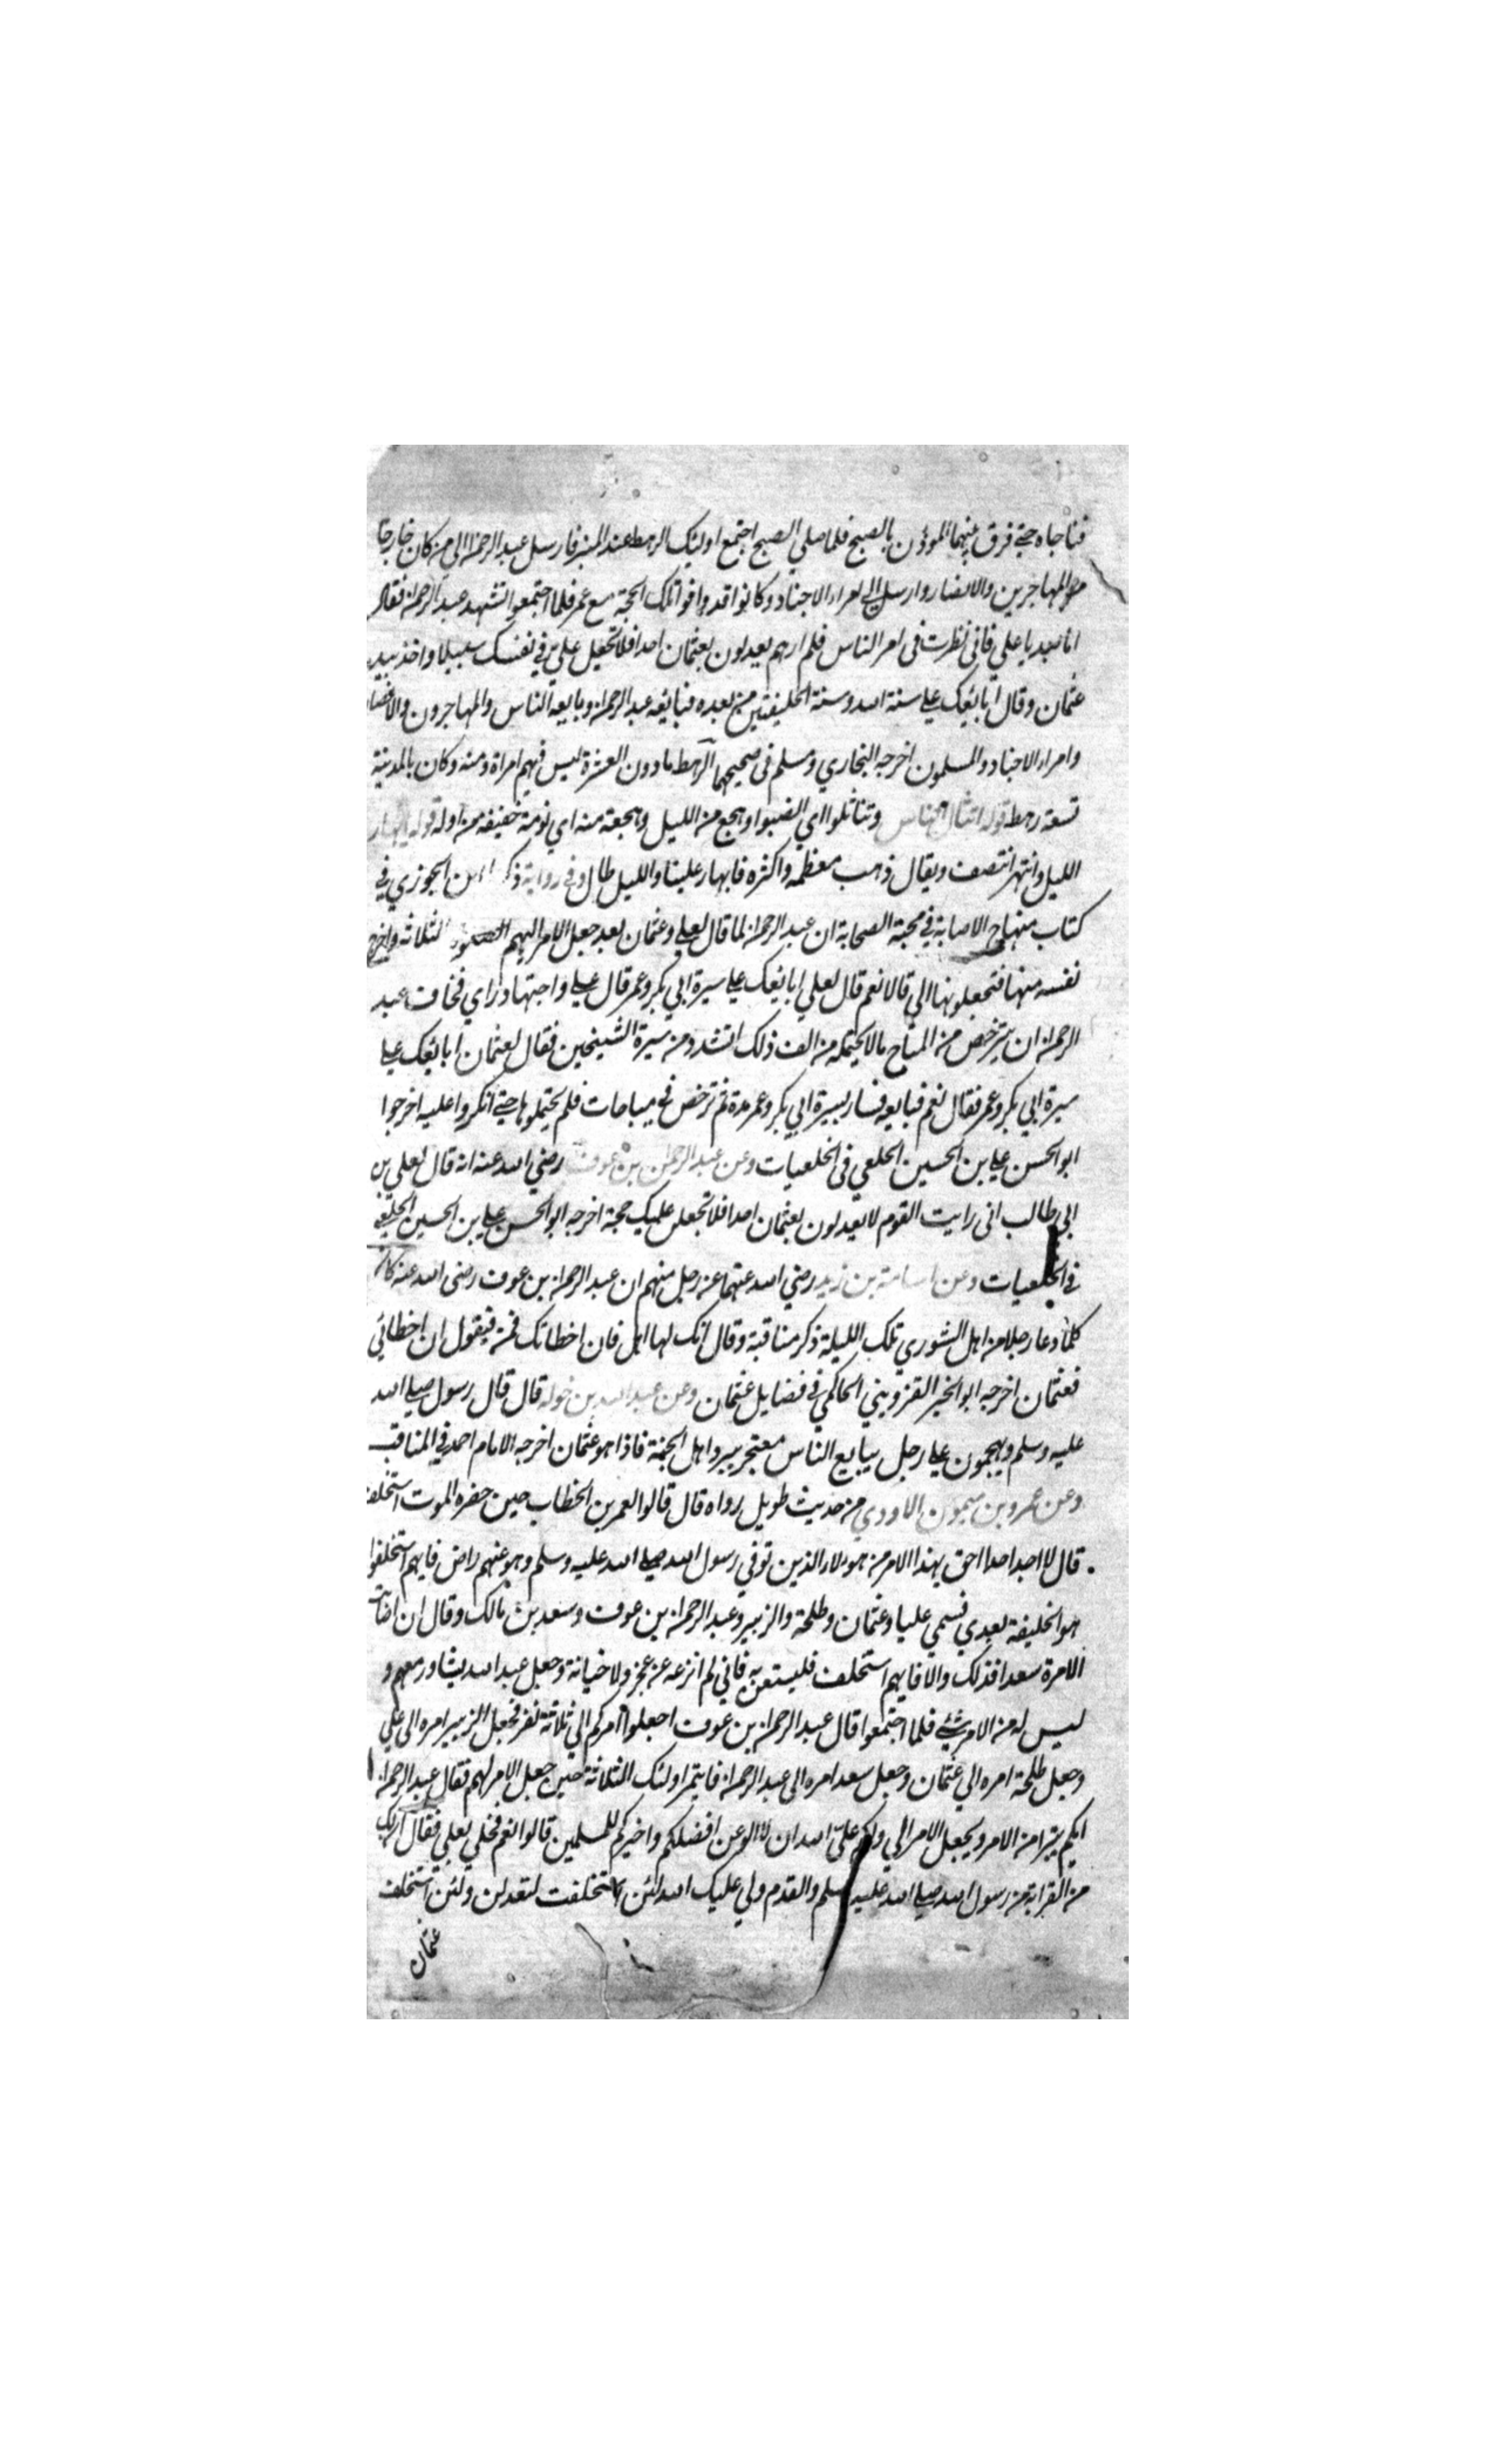 فناجاه حتي فرق بينهما الموذن بالصبح فلما صلي الصبح اجتمع اوليك الرهط عند المنبر فارسل عبد الرحمن الي من كان خارجا
من المهاجرين والانصار وارسل الي امراء الاجناد وكانوا قد وافوا تلك الحجة مع عمر فلما اجتمعوا تشهد عبد الرحمن فقال
اما بعد يا علي فاني نظرت في امر الناس فلم ارهم يعدلون بعثمان احدا فلا تجعل علي في نفسك سبيلا واخذ بيد
عثمان وقال ابايعك علي سنة الله وسنة الخليفتين من بعده فبايعه عبد الرحمن وبايعه الناس والمهاجرون والانصار
وامراء الاجناد والمسلمون اخرجه البخاري ومسلم في صحيحهما الرهط ما دون العشرة ليس فيهم امراة ومنه وكان بالمدينة
تسعة رهط قوله انثال الناس وتناثلوا اي انصبوا وهجع من الليل وهجعة منه اي نومة خفيفة من اوله قوله ابهار
الليل وانتهر انتصف ويقال ذهب معظمه واكثره فابهار علينا والليل طال وفي رواية ذكرها ابن الجوزي في
كتاب منهاج الاصابة في محبة الصحابة ان عبد الرحمن لما قال لعلي وعثمان بعد جعل الامر اليهم الثلاثة واخرج
نفسه منها فتجعلونها الي قالا نعم قال لعلي ابايعك علي سيرة ابي بكر وعمر قال علي واجتهاد راي فخاف عبد
الرحمن ان يترخص من المباح ما لا يحتمله من الف ذلك التشدد من سيرة الشيخين فقال لعثمان ابايعك علي
سيرة ابي بكر وعمر فقال نعم فبايعه فسار بسيرة ابي بكر وعمر مدة ثم ترخص في مباحات فلم يحتملوها حتي انكروا عليه اخرجوا
ابو الحسن علي بن الحسين الخلعي في الخلعيات وعن عبد الرحمن بن عوف رضي الله عنه انه قال لعلي بن
ابي طالب اني رايت القوم لا يعدلون بعثمان احدا فلا تجعلن عليك حجة اخرجه ابو الحسن علي بن الحسين الخلعي
في الخلعيات وعن اسامة بن زيد رضي الله عنهما عن رجل منهم ان عبد الرحمن بن عوف رضي الله عنه كان
كلما دعا رجلا من اهل الشوري تلك الليلة ذكر مناقبة وقال انك لها اهل فان اخطاتك فمن فيقول ان اخطاتي
فعثمان اخرجه ابو الخير القزويني الحاكمي في فضايل عثمان وعن عبد الله بن خولة قال قال رسول صلي الله
عليه وسلم ويهجمون علي رجل يبايع الناس معتجر ببرد اهل الجنة فاذا هو عثمان اخرجه الامام احمد في المناقب
وعن عمرو بن ميمون الاودي من حديث طويل رواه قال قالوا لعمر بن الخطاب حين حضره الموت استخلف
قال لا اجد احدا احق بهذا الامر من هولاء الذين توفي رسول الله صلي الله عليه وسلم وهو عنهم راض فايهم استخلفوا
هو الخليفة بعدي فسمي عليا وعثمان وطلحة والزبير وعبد الرحمن بن عوف وسعد بن مالك وقال ان اصابت
الامرة سعدا فذلك والا فايهم استخلف فليستعن به فاني لم انزعه عن عجز ولا خيانة وجعل عبد الله يشاور معهم و
ليس له من الامر شيء فلما اجتمعوا قال عبد الرحمن بن عوف اجعلوا امركم الي ثلاثة نفر فجعل الزبير امره الي علي
وجعل طلحة امره الي عثمان وجعل سعد امره الي عبد الرحمن فايتمر اولئك الثلاثة حين جعل الامر لهم فقال عبد الرحمن
ايكم يتبرا من الامر ويجعل الامر الي ولكم علي الله ان لا الو عن افضلكم واخيركم للمسلمين قالوا نعم فخلي بعلي فقال ان لك
من القرابة من رسول الله صلي الله عليه وسلم والقدم ولي عليك الله لئن استخلفت لتعدلن ولئن استخلف
عثمان